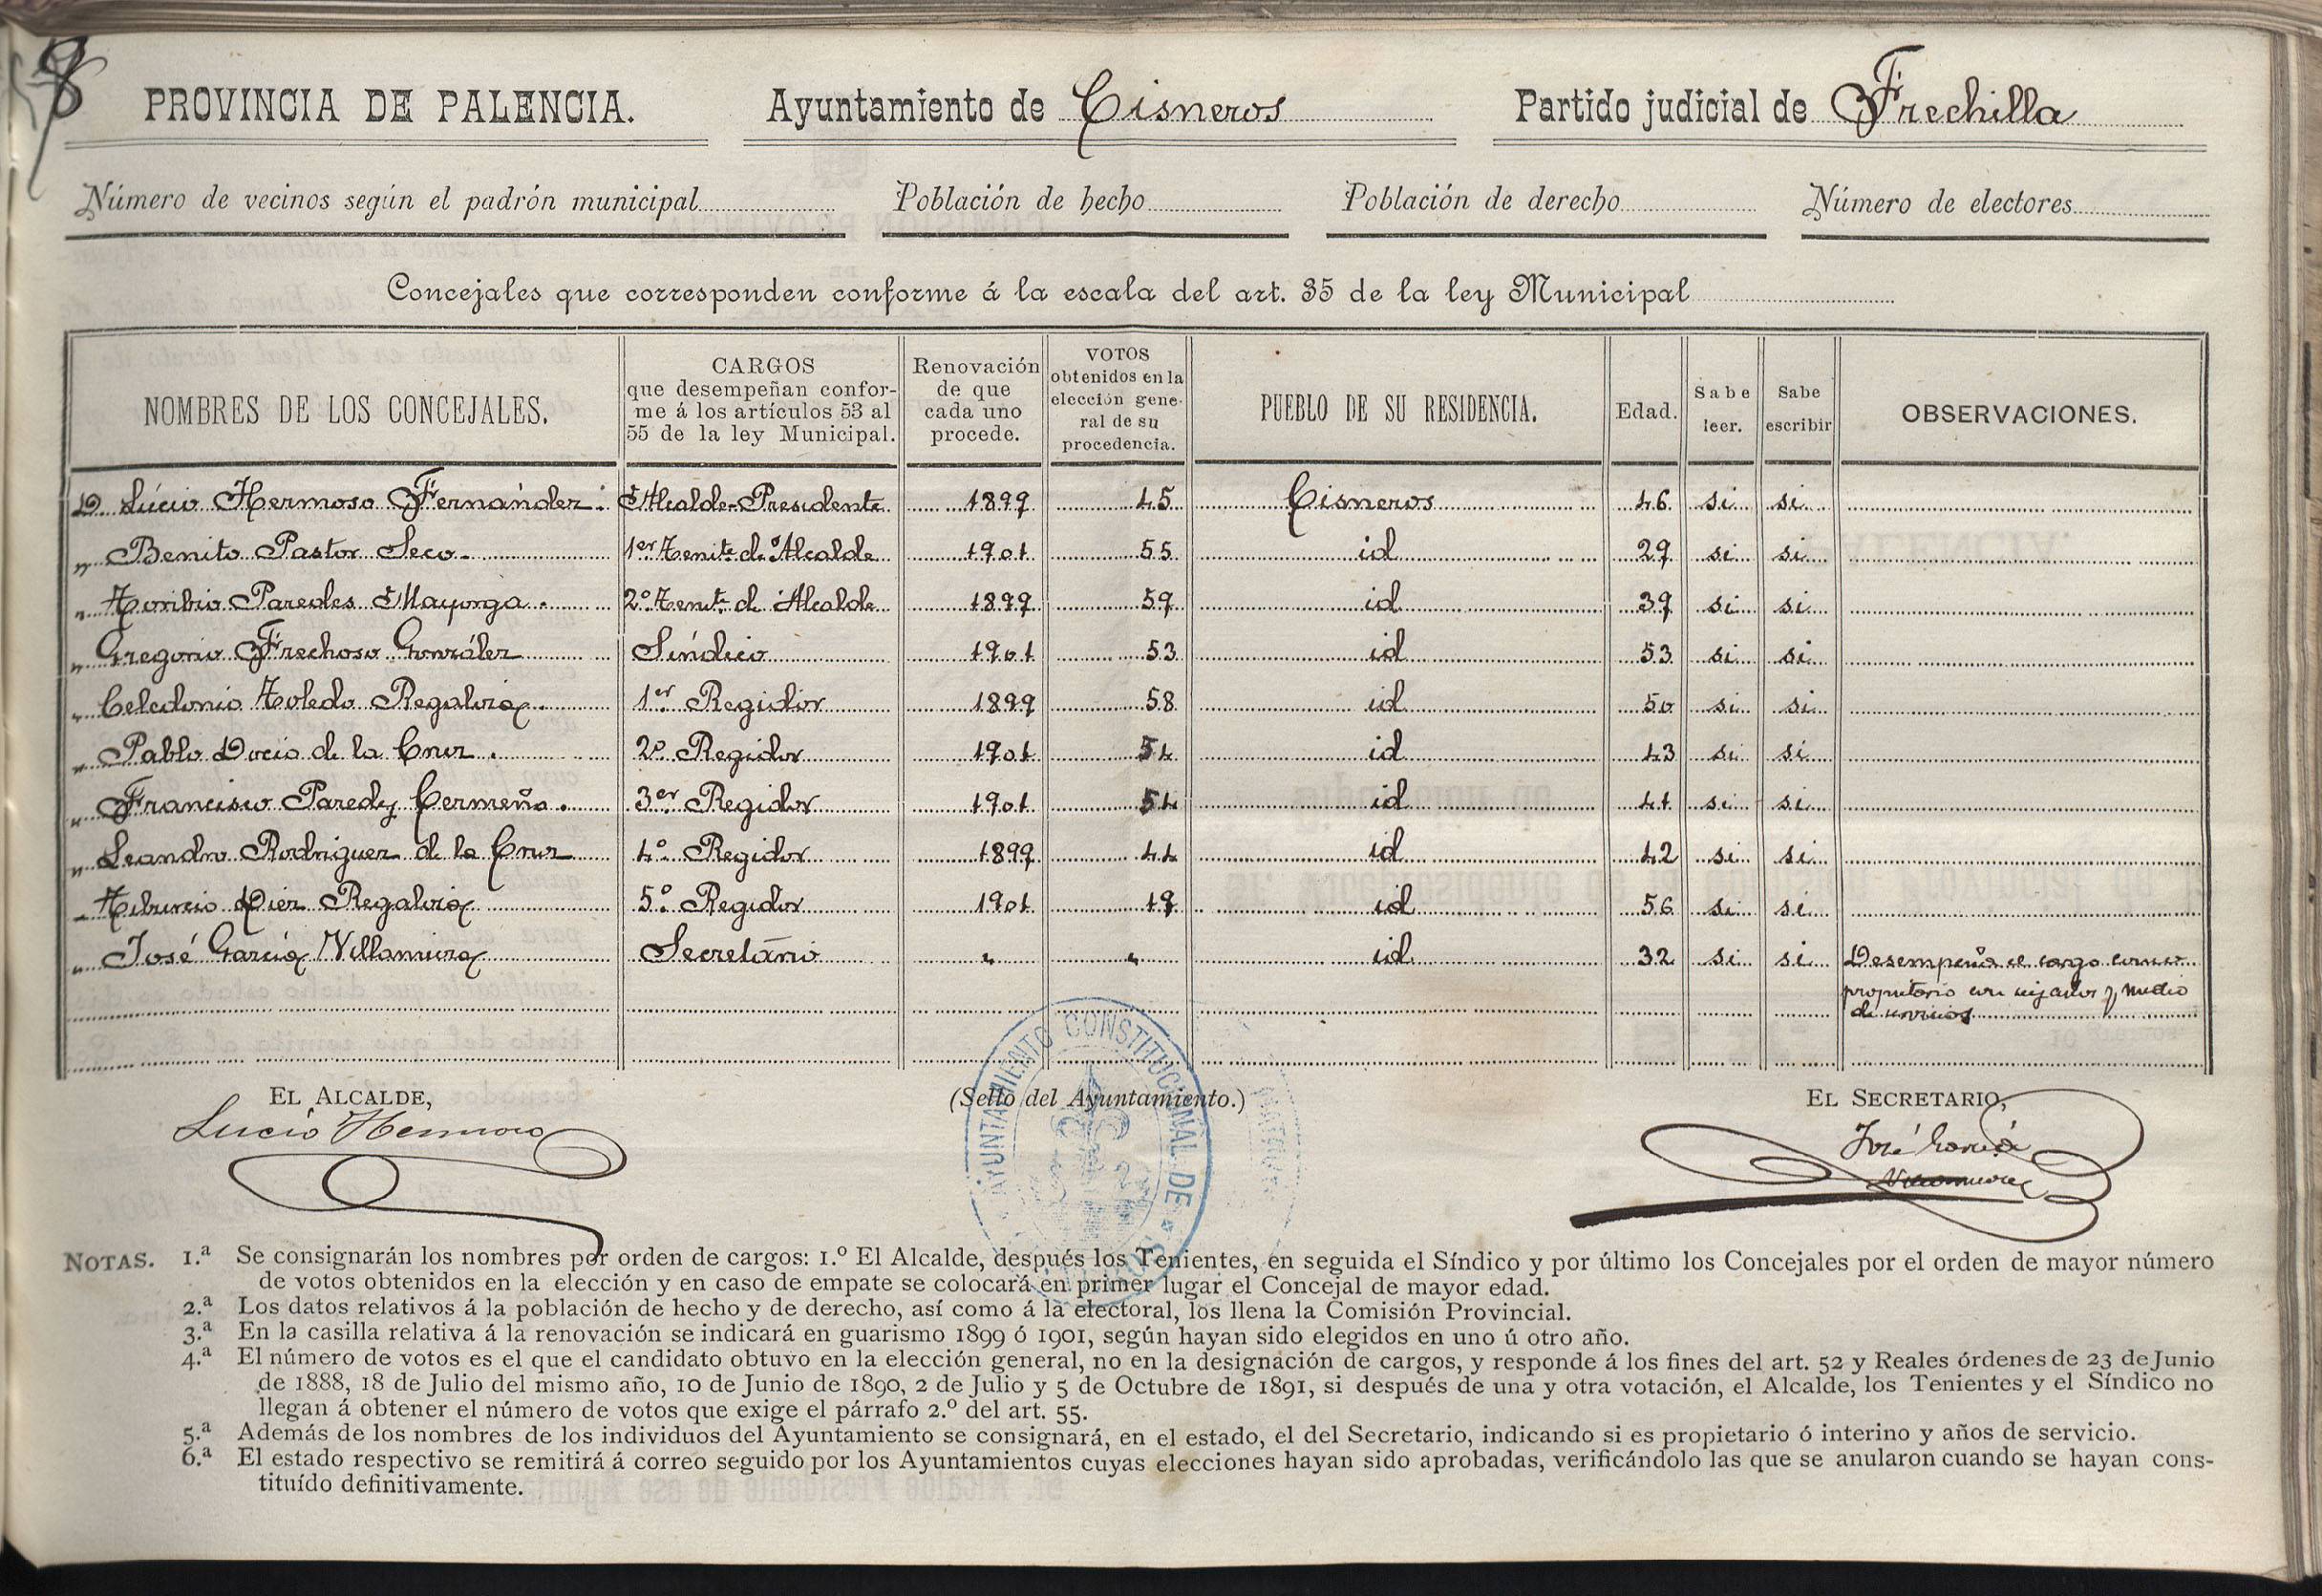 8
PROVINCIA DE PALENCIA. Ayuntamiento de Cisneros Partido judicial de Frechilla
Número de vecinos según el padrón municipal Población de hecho Población de derecho Número de electores
Concejales que corresponden conforme á la escala del art. 35 de la ley Municipal
NOMBRES DE LOS CONCEJALES.
CARGOS
que desempeñan confor-
me á los artículos 53 al
55 de la ley Municipal.
Renovación
de que
cada uno
procede.
VOTOS
obtenidos en la
elección gene-
ral de su
procedencia.
PUEBLO DE SU RESIDENCIA.
Edad.
Sabe
leer.
Sabe
escribir
OBSERVACIONES.
D. Lúcio Hermoso Fernández. Alcalde-Presidente 1899 45 Cisneros 46 si si
„ Benito Pastor Seco. 1er Tenite. de Alcalde 1901 55 id 29 si si
„ Toribio Paredes Mayorga. 2º Tenite. de Alcalde 1899 59 id 39 si si
„ Gregorio Frechoso González Síndico 1901 53 id 53 si si
„ Celedonio Toledo Regaliza. 1er Regidor 1899 58 id 50 si si
„ Pablo Docio de la Cruz. 2º Regidor 1901 54 id 43 si si
„ Francisco Paredes Cermeño. 3er Regidor 1901 54 id 41 si si
„ Leandro Rodriguez de la Cruz 4º Regidor 1899 44 id 42 si si
„ Tiburcio Diez Regaliza 5º Regidor 1901 19 id 56 si si
„ José García Villamuza Secretário „ „ id 32 si si Desempeña el cargo como
propietario con seis años y medio
de servicios
EL ALCALDE, (Sello del Ayuntamiento.) EL SECRETARIO,
Lucio Hermoso
José García
Villamuza
AYUNTAMIENTO CONSTITUCIONAL DE
NOTAS. 1.ª Se consignarán los nombres por orden de cargos: 1.º El Alcalde, después los Tenientes, en seguida el Síndico y por último los Concejales por el orden de mayor número
de votos obtenidos en la elección y en caso de empate se colocará en primer lugar el Concejal de mayor edad.
2.ª Los datos relativos á la población de hecho y de derecho, así como á la electoral, los llena la Comisión Provincial.
3.ª En la casilla relativa á la renovación se indicará en guarismo 1899 ó 1901, según hayan sido elegidos en uno ú otro año.
4.ª El número de votos es el que el candidato obtuvo en la elección general, no en la designación de cargos, y responde á los fines del art. 52 y Reales órdenes de 23 de Junio
de 1888, 18 de Julio del mismo año, 10 de Junio de 1890, 2 de Julio y 5 de Octubre de 1891, si después de una y otra votación, el Alcalde, los Tenientes y el Síndico no
llegan á obtener el número de votos que exige el párrafo 2.º del art. 55.
5.ª Además de los nombres de los individuos del Ayuntamiento se consignará, en el estado, el del Secretario, indicando si es propietario ó interino y años de servicio.
6.ª El estado respectivo se remitirá á correo seguido por los Ayuntamientos cuyas elecciones hayan sido aprobadas, verificándolo las que se anularon cuando se hayan cons-
tituído definitivamente.